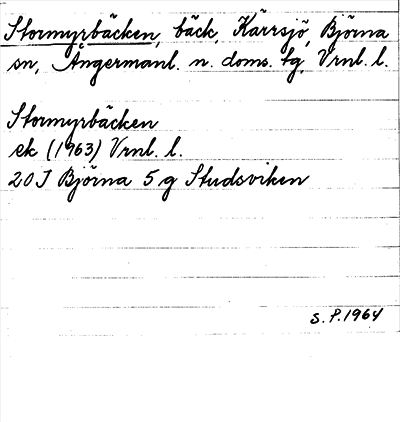 Stormyrbäcken, bäck, Kärrsjö, Björna
sn, Ångermanl. n. doms. tg, Vrnl. l.
Stormyrbäcken
ek (1963) Vrnl. l.
20J Björna 5 g Studsviken
S. P. 1964